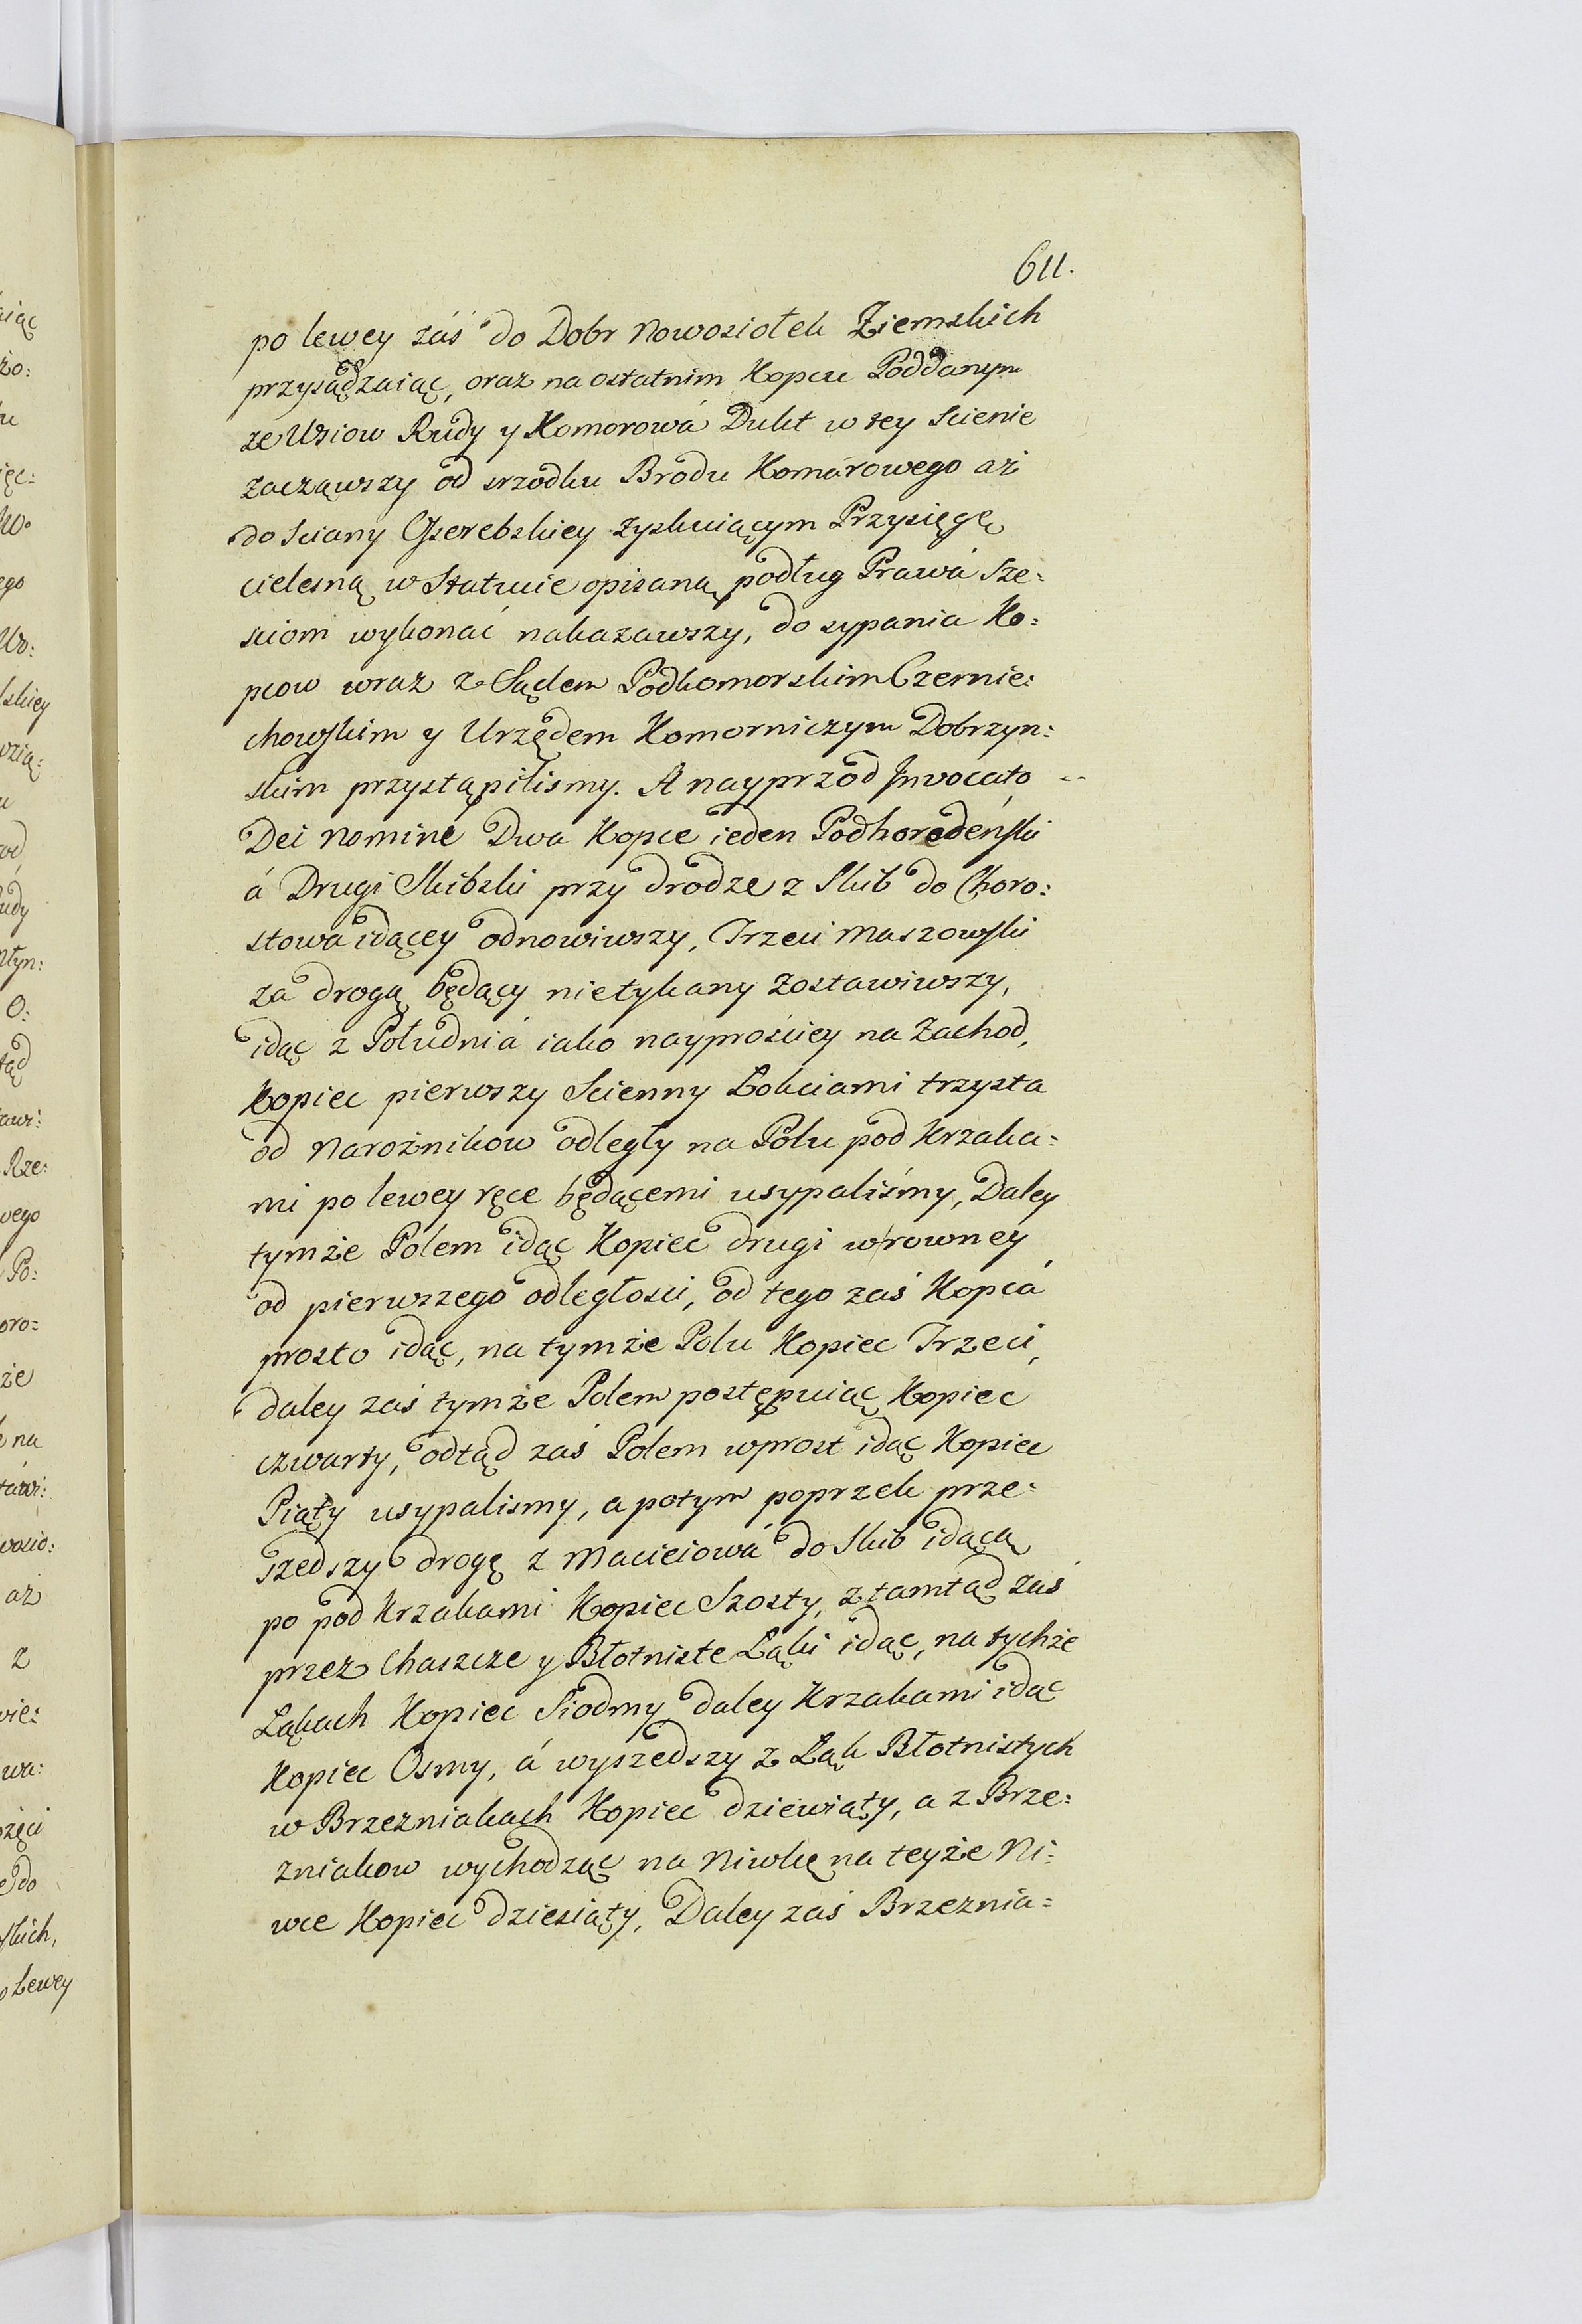 611.
po lewey záś do Dobr Nowosiołek Ziemskich
przysądzaiąc, oraz na ostatnim Kopcu Poddanym
ze Wsiow Rudy y Komorowá Dukt w tey Scienie
zacząwszy od srzodku Brodu Komárowego aż
do Sciany Oserebskiey zyskuiącym Przysięgę
cielesną w Statucie opisaną podług Prawá Sze:
sciom wykonać nakazawszy, do sypania Ko:
pcow wraz z Sądem Podkomorskim Czernie:
chowskim y Urzędem Komorniczym Dobrzyn:
skim przystąpilismy. A nayprzod Invocato --
Dei Nominé Dwa Kopce ieden Podhorodeński
á Drugi Skibski przy drodze z Skib do Choro:
stowá idącey odnowiwszy, Trzeci Maszowski
zá drogą będący nietykany zostawiwszy,
idąc z Południá iako nayprościey na Zachod,
Kopiec pierwszy Scienny Łokciami trzysta
od Narożnikow odległy na Polu pod Krzaka:
mi po lewey ręce będącemi usypaliśmy, Daley
tymże Polem idąc Kopiec drugi w rowney
od pierwszego odległosci, od tego zaś Kopcá
prosto idąc, na tymże Polu Kopiec Trzeci,
daley zaś tymże Polem postępuiąc Kopiec
czwarty, odtąd zaś Polem wprost idąc Kopiec
Piąty usypalismy, a potym poprzek prze:
szedszy drogę z Macieiowá do Skib idącą
po pod Krzakami Kopiec Szosty, ztamtąd zaś
przez Chaszcze y Błotniste Łąki idąc, na tychże
Łąkach Kopiec Siodmy daley Krzakami idąc
Kopiec Osmy, á wyszedszy z Łąk Błotnistych
w Brzezniakach Kopiec dziewiąty, a z Brze:
zniakow wychodząc na Niwkę na teyże Ni:
wce Kopiec dziesiąty, Daley zaś Brzeznia=